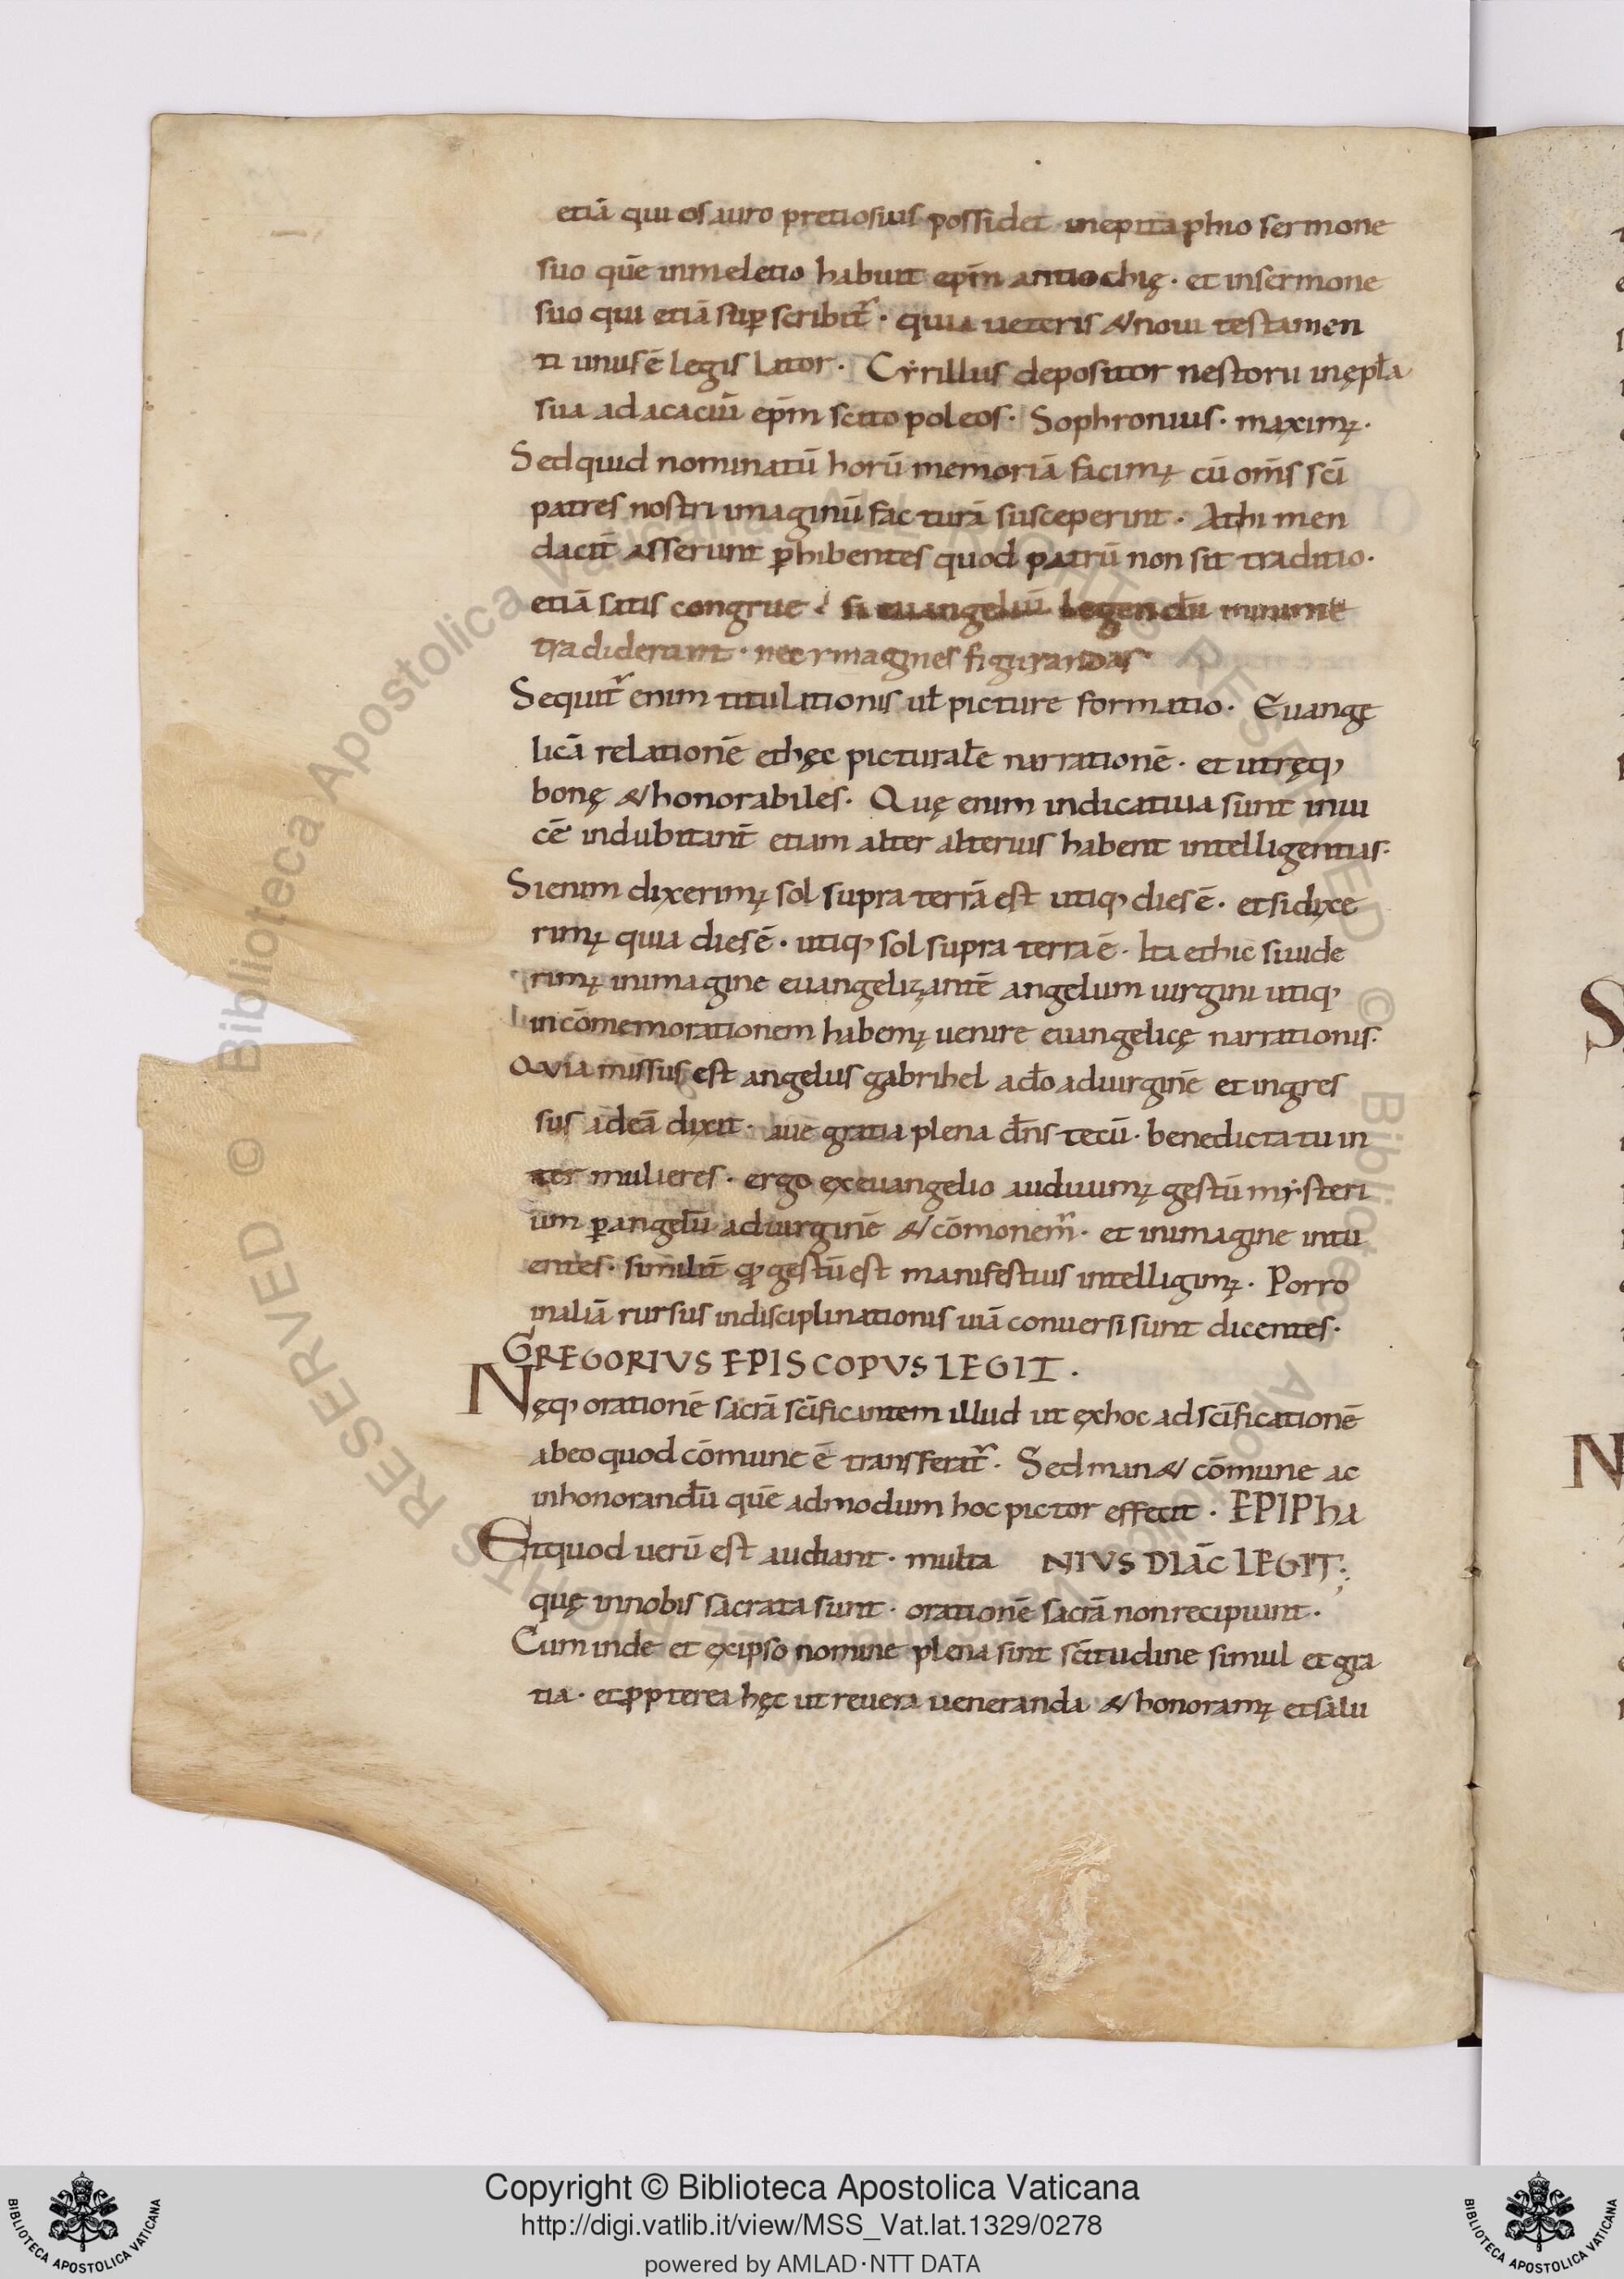 etiā qui os auro pretiosius possidet in epitaphio sermone
suo quē in meletio habuit ep̄m antiochię · et in sermone
suo qui etiā sup̱ scribit᷑ · quia ueteris & noui testamen
ti unus ē legis lator · Cẏrillus depositor nestorii in ępl̄a
sua ad acaciū ep̄m scitopoleos · Sophronius · maximꝰ ·
Sed quid nominatū horū memoriā facimꝰ cū om̄s sc̄i
patres nostri imaginū facturā susceperint · At hi men
daciū asserunt ꝑhibentes quod patrū non sit traditio ·
etiā satis congrue si euangeliū legendū minime
tradiderunt · nec ymagines figurandas
Sequit᷑ enim titulationis ul̄ picture formatio · Euange
licā relationē et hęc picturalē narrationē · et utręq;
bonę & honorabiles · Quę enim indicatiua sunt inui
cē indubitant̄ etiam alter alterius habent intelligentias ·
Si enim dixerimꝰ sol supra terrā est utiq; dies ē · et si dixe
rimꝰ quia dies ē · utiq; sol supra terra ē · Ita et hic si uide
rimꝰ in imagine euangelizantē angelum uirgini utiq;
in cōmemorationem habemꝰ uenire euangelicę narrationis ·
Quia missus est angelus gabrihel a do̅ ad uirginē et ingres
sus ad eā dixit · aue gratia plena dn̄s tecū · benedicta tu in
ter mulieres · ergo ex euangelio audiuimꝰ gestū mẏsteri
um ꝑ angelū ad uirginē & cōmonem᷑ · et in imagine intu
entes · similit̄ qđ gestū est manifestius intelligimꝰ · Porro
in aliā rursus indisciplinationis uiā conuersi sunt dicentes ·
GREGORIVS EPISCOPVS LEGIT ·
Nęq; orationē sacrā sc̄ificantem illud ut ex hoc ad sc̄ificationē
ab eo quod cōmune ē transferat᷑ · Sed man& cōmune ac
inhonorandū quē admodum hoc pictor effecit · EPIPha
Et quod uerū est audiant · multa NIVS DIAC̄ LEGIT ·
quę in nobis sacrata sunt · orationē sacrā non recipiunt ·
Cum inde et ex ipso nomine plena sint sc̄itudine simul et gra
tia · et ꝓpterea hęc ut reuera ueneranda & honoramꝰ et salu
Copyright © Biblioteca Apostolica Vaticana
http://digi.vatlib.it/view/MSS_Vat.lat.1329/0278
powered by AMLAD·NTT DATA
BIBLIOTECA APOSTOLICA VATICANA
BIBLIOTECA APOSTOLICA VATICANA